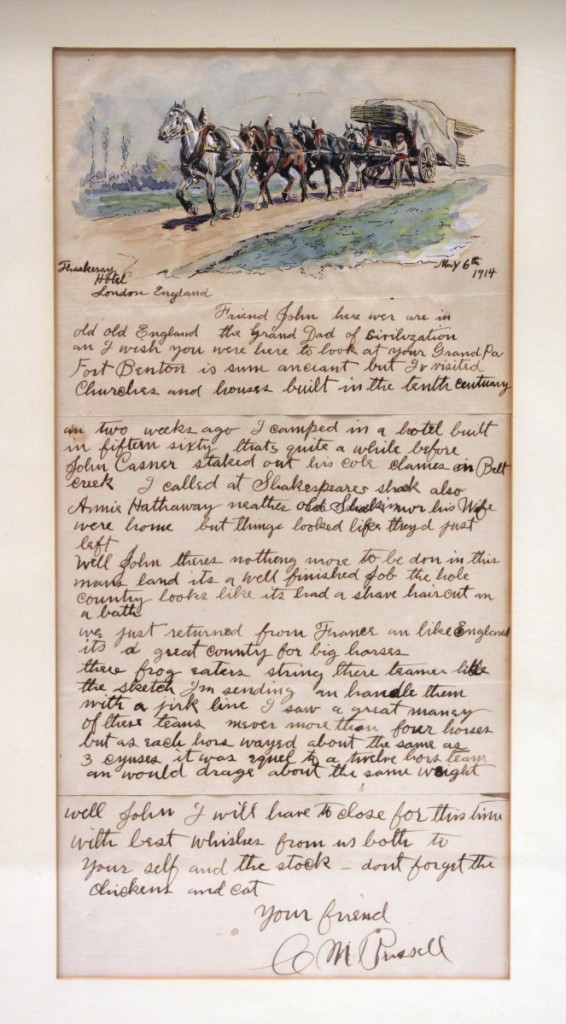 Thackeray
Hotel
London England
May 6th
1914
Friend John here wer are in
old old England the Grand Dad of Civilization
an I wish you were here to look at your Grand Pa
Fort Benton is sum anciant but Iv visited
Churches and houses built in the tenth centuary
an two weeks ago I camped in a hotel built
in fifteen sixty thats quite a while before
John Casner staked out his cole claimes on Belt
creek I called at Shakespeares shak also
Annie Hathaway neather old Shak nor his Wife
were home but things looked like theyd just
left
Well John theres nothing more to be don in this
mans land its a well finished Job the hole
country looks like its had a shave haircut an
a bath
wev just returned from France an like England
its a great country for big horses
these frog eaters string there teames like
the sketch I'm sending an handle them
with a jirk line I saw a great maney
of these teams never more than four horses
but as each hors wayed about the same as
3 cyuses it was equel to a twelve hors team
an would drage about the same weight
well John I will have to close for this time
with best whishes from us both to
your self and the stock – dont forget the
chickens and cat
your friend
C M Russell